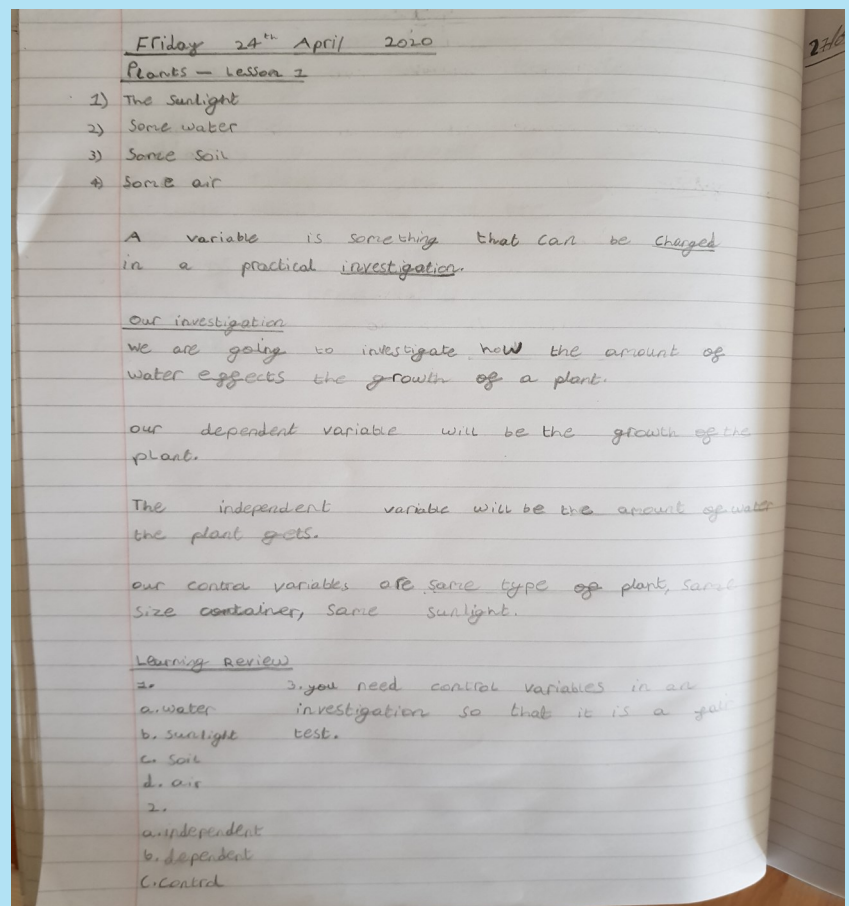 Friday 24th April 2020
Plants - Lesson 1
1) The Sunlight
2) Some water
3) Some soil
4) Some air
A variable is something that can be changed
in a practical investigation.
Our investigation
We are going to investigate how the amount of
water effects the growth of a plant.
our dependent variable will be the growth of the
plant.
The independent variable will be the amount of water
the plant gets.
our control variables are same type of plant, same
size container, same sunlight.
Learning Review
1.
a. water
b. sunlight
c. soil
d. air
2.
a. independent
b. dependent
c. control
3. you need control variables in an
investigation so that it is a fair
test.